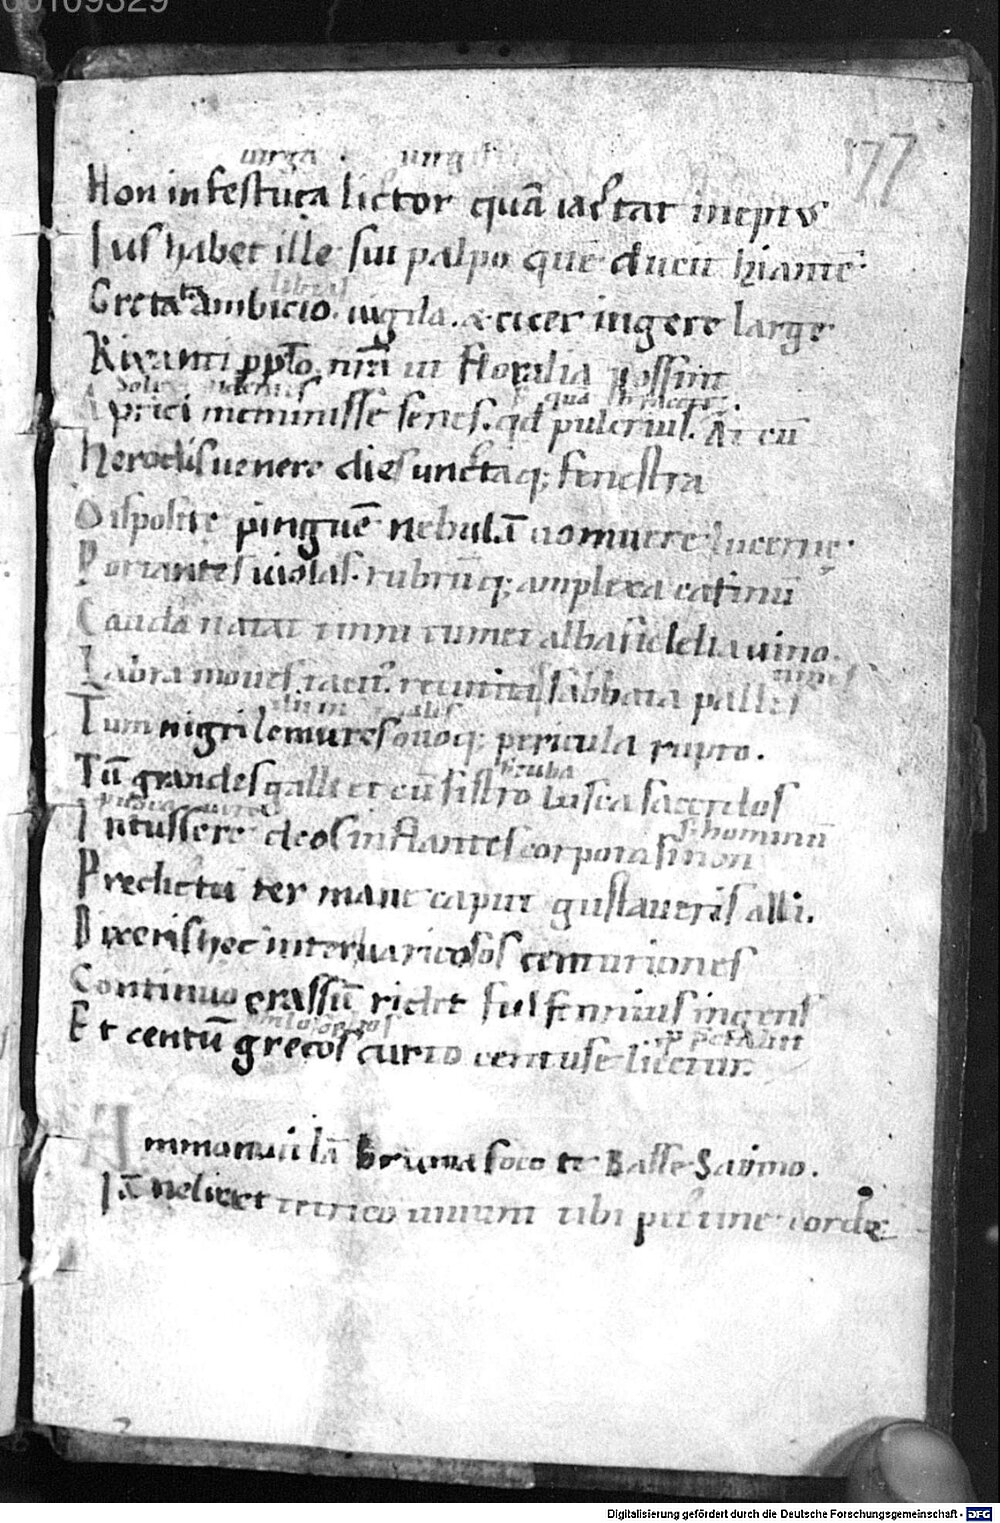 00109329
177
uirga
Non in festuca lictor quā iactat ineptus
Ius habet ille sui palpo quē ducit hiante
Creta ambicio. uigila. & cicer ingere large
Rixanti ppło. nr̄a ut floralia possint
Aprici meminisse senes. qd pulcrius. At cū
Herodis uenere dies unctaq; fenestra
Disposite pinguē nebulā uomuere lucernę.
Portantes uiolas. rubrūq; amplexa catinū
Cauda natat tinni tumet alba fidelia uino.
times
Labra moues tacit'. recutitaq sabbata palles
Tum nigri lemures ouoq; pericula rupto.
Tū grandes galli et cū sistro lusca sacerdos
s. hominū
Incussere deos inflantes corpora si non
Predictū ter mane caput gustaueris alli.
Dixeris hec inter uaricosos centuriones
Continuo crassū ridet fulfennius ingens
philosophos
Et centū grecos curto centusse licetur.
Ammouit iā bruma foco te Basse Sabino.
Iā ne lira et tetrico uiuunt tibi pectine corde
Digitalisierung gefördert durch die Deutsche Forschungsgemeinschaft - DFG